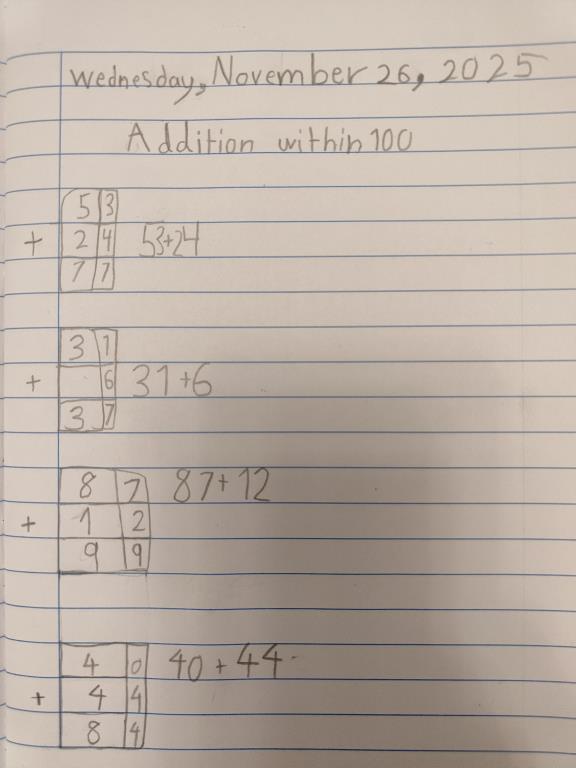 Wednesday, November 26, 2025
Addition within 100
5 3
+ 2 4 53+24
7 7
3 1
+ 6 31+6
3 7
8 7 87+12
+ 1 2
9 9
4 0 40+44
+ 4 4
8 4